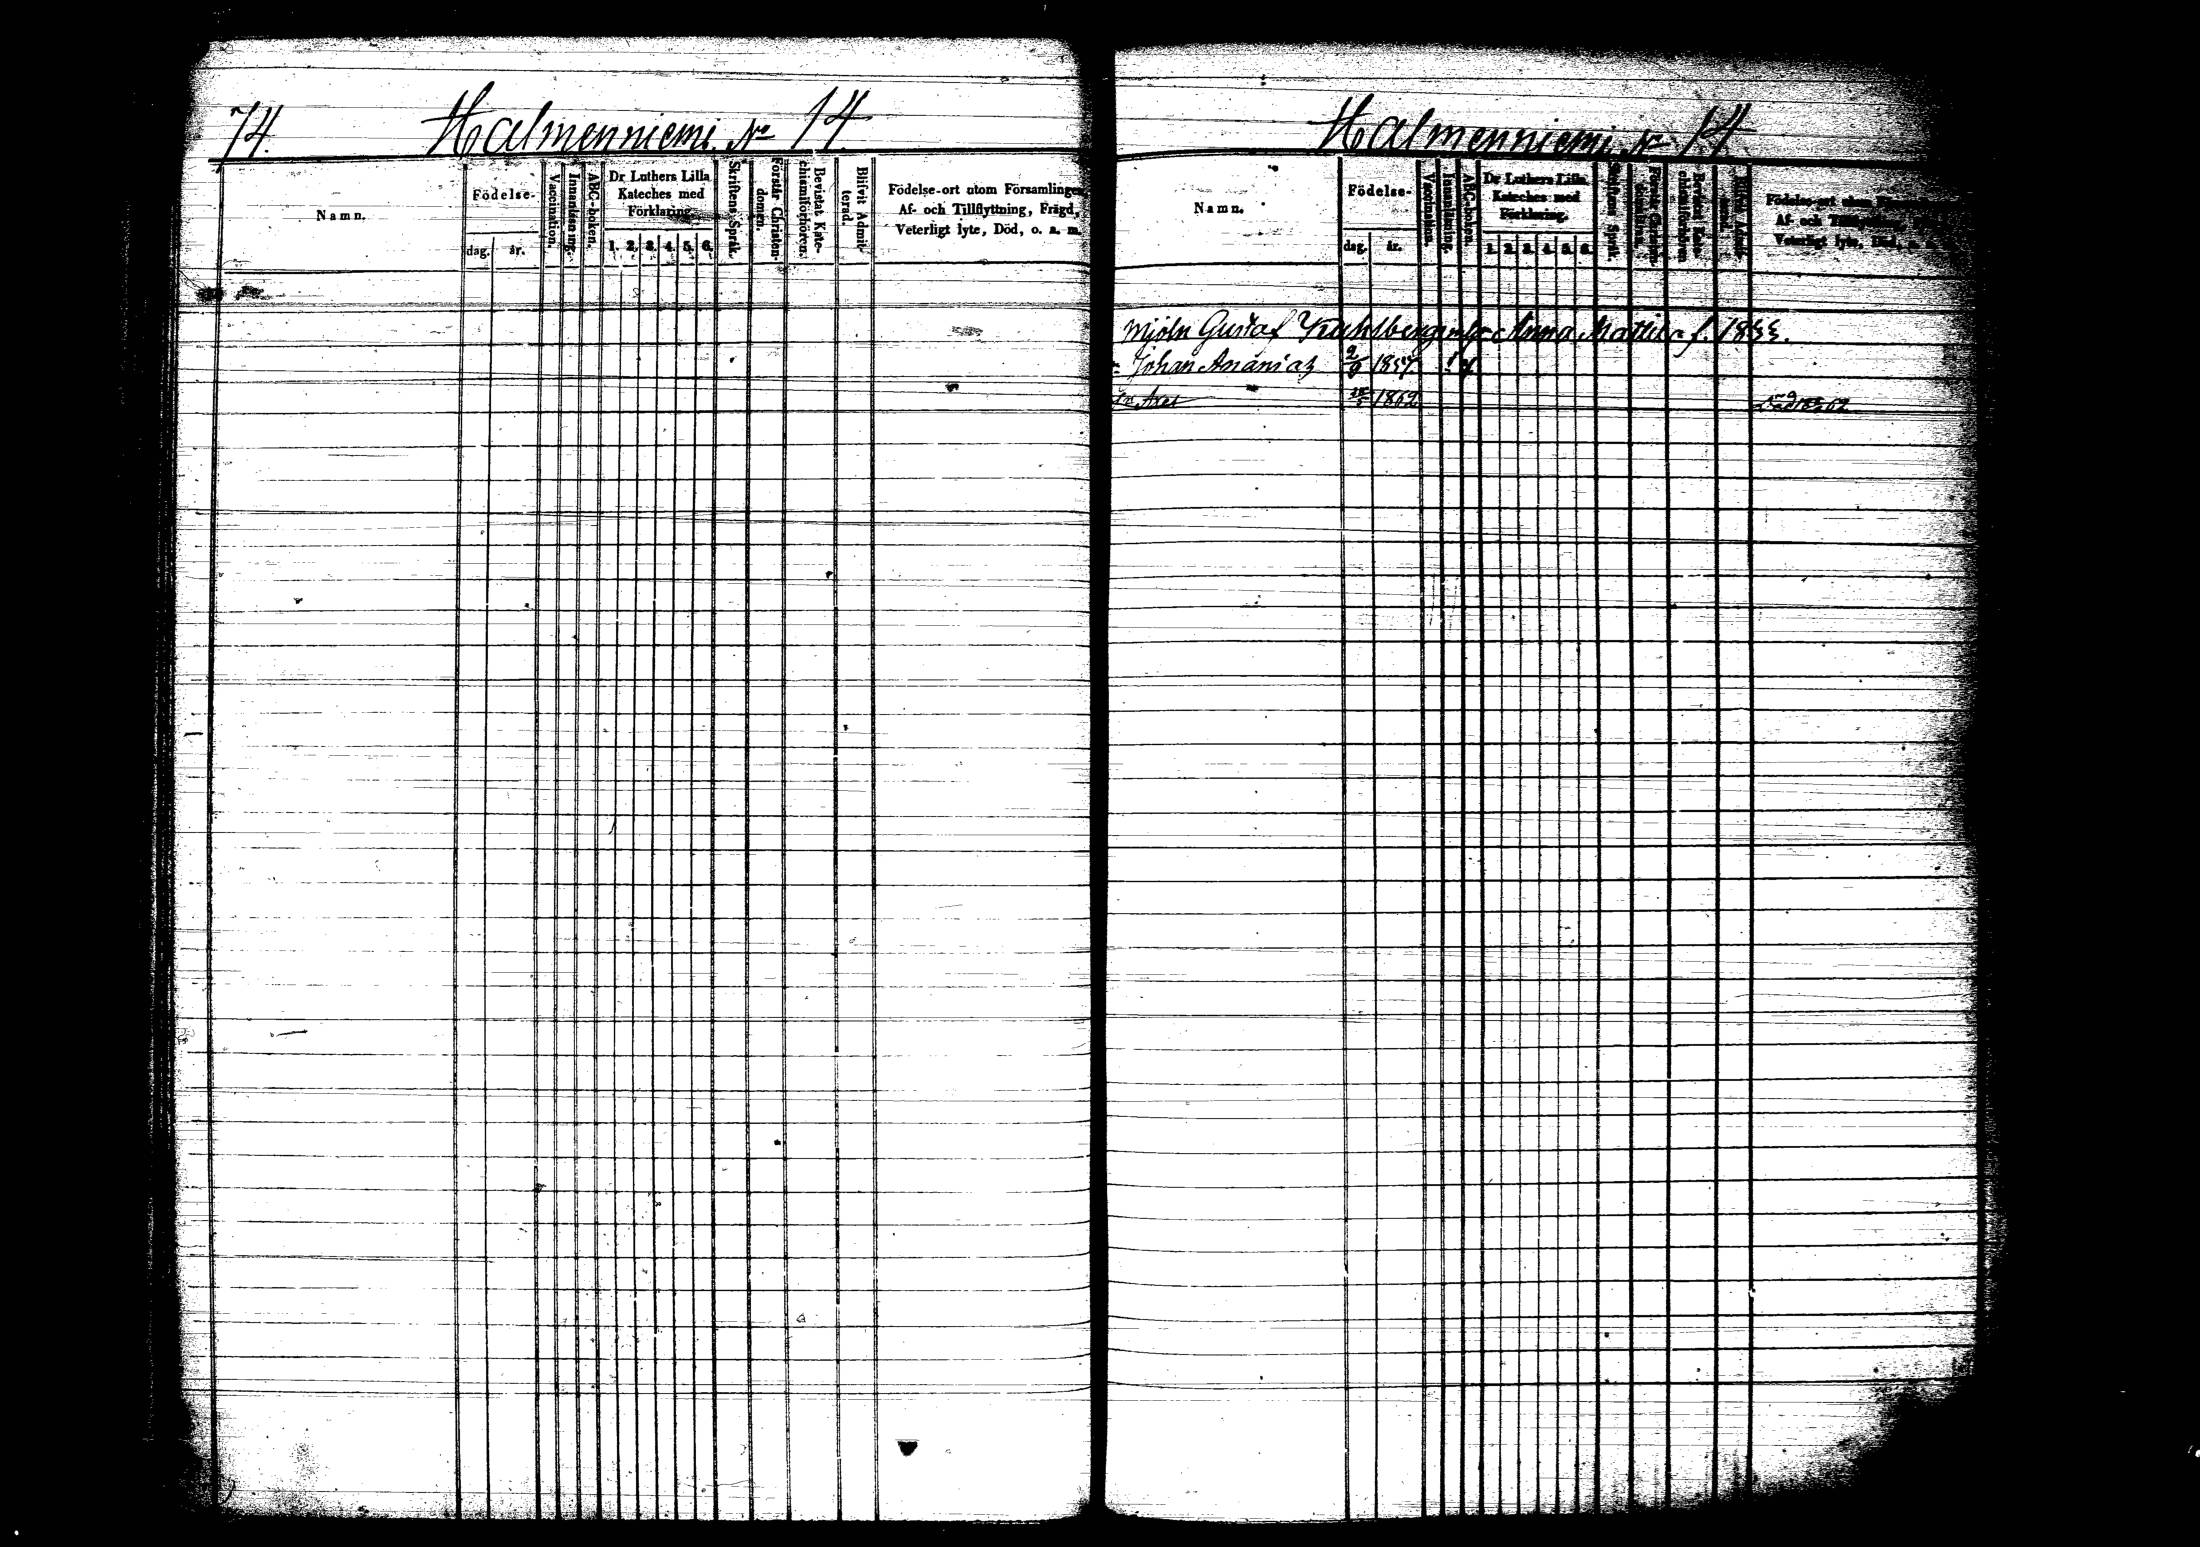 74. Halmenniemi No 14.
Namn.
Födelse-
dag. år.
Vaccination.
Innanläsning.
ABC-boken.
Dr Luthers Lilla
Kateches med
Förklaring.
1. 2. 3. 4. 5. 6.
Skriftens Språk.
Förstår Christen-
domen.
Bevistat Kate-
chismiförhören.
Blifvit Admit-
terad.
Födelse-ort utom Församlingen,
Af- och Tillflyttning, Frägd,
Veterligt lyte, Död, o. a. m.
Halmenniemi No 14.
Namn.
Födelse-
dag. år.
Vaccination.
Innanläsning.
ABC-boken.
Dr Luthers Lilla
Kateches med
Förklaring.
1. 2. 3. 4. 5. 6.
Skriftens Språk.
Förstår Christen-
domen.
Bevistat Kate-
chismiförhören
Födelse-ort utom
Af- och Tillflyttning,
Veterligt lyte, Död, o. a.
Mjöln Gustaf Anna f. 1833.
Johan Ananias 2/9 1857
Axel 1862 62